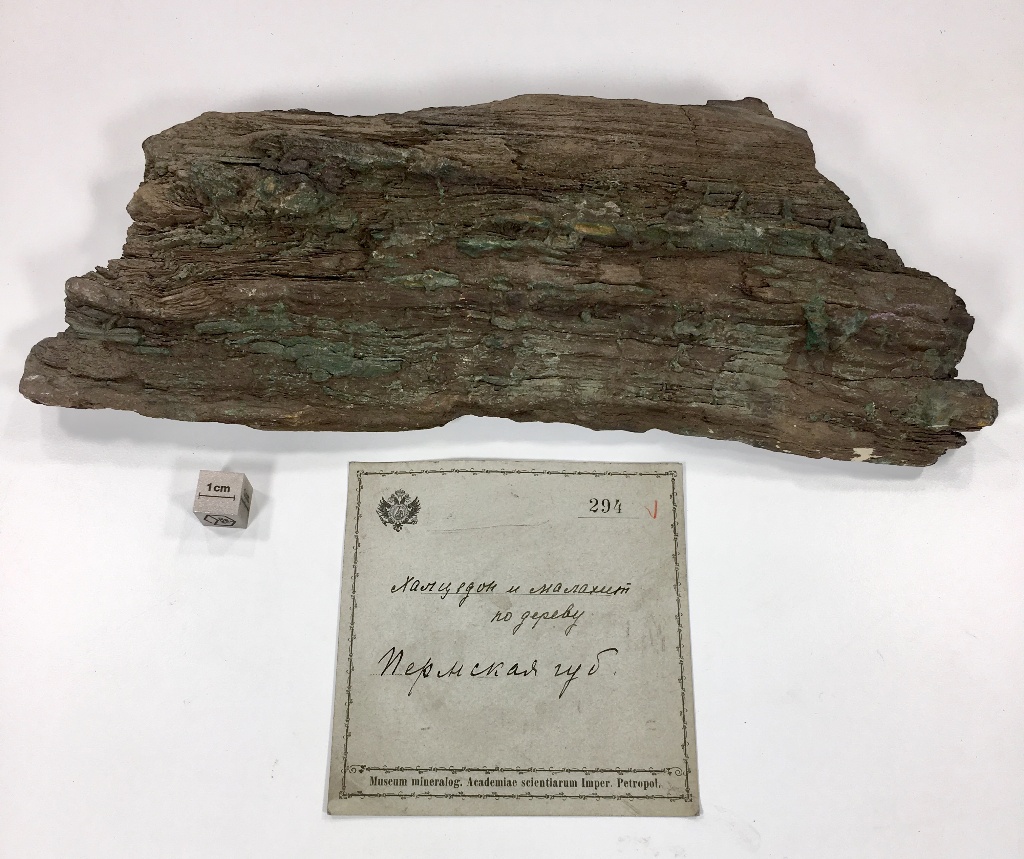 1cm
294
Халцедон и малахит
по дереву
Пермская губ.
Museum mineralog. Academiae scientiarum Imper. Petropol.